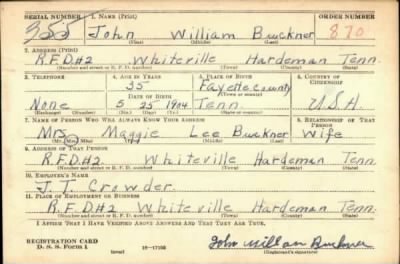 SERIAL NUMBER 1. NAME (Print) ORDER NUMBER
355 John William Buckner 870
(First) (Middle) (Last)
2. ADDRESS (Print)
R.F.D#2 Whiteville Hardeman Tenn.
(Number and street or R. F. D. number) (Town) (County) (State)
3. TELEPHONE 4. AGE IN YEARS 5. PLACE OF BIRTH 6. COUNTRY OF CITIZENSHIP
35 Fayette county
DATE OF BIRTH (Town or county)
None 5 25 1904 Tenn. U.S.A.
(Exchange) (Number) (Mo.) (Day) (Yr.) (State or country)
7. NAME OF PERSON WHO WILL ALWAYS KNOW YOUR ADDRESS 8. RELATIONSHIP OF THAT PERSON
Mrs. Maggie Lee Buckner Wife
(Mr., Mrs., Miss) (First) (Middle) (Last)
9. ADDRESS OF THAT PERSON
R.F.D#2 Whiteville Hardeman Tenn.
(Number and street or R. F. D. number) (Town) (County) (State)
10. EMPLOYER'S NAME
J.T. Crowder
11. PLACE OF EMPLOYMENT OR BUSINESS
R.F.D#2 Whiteville Hardeman Tenn.
(Number and street or R. F. D. number) (Town) (County) (State)
I AFFIRM THAT I HAVE VERIFIED ABOVE ANSWERS AND THAT THEY ARE TRUE.
REGISTRATION CARD
D. S. S. Form 1 (over) John William Buckner
(Registrant's signature)